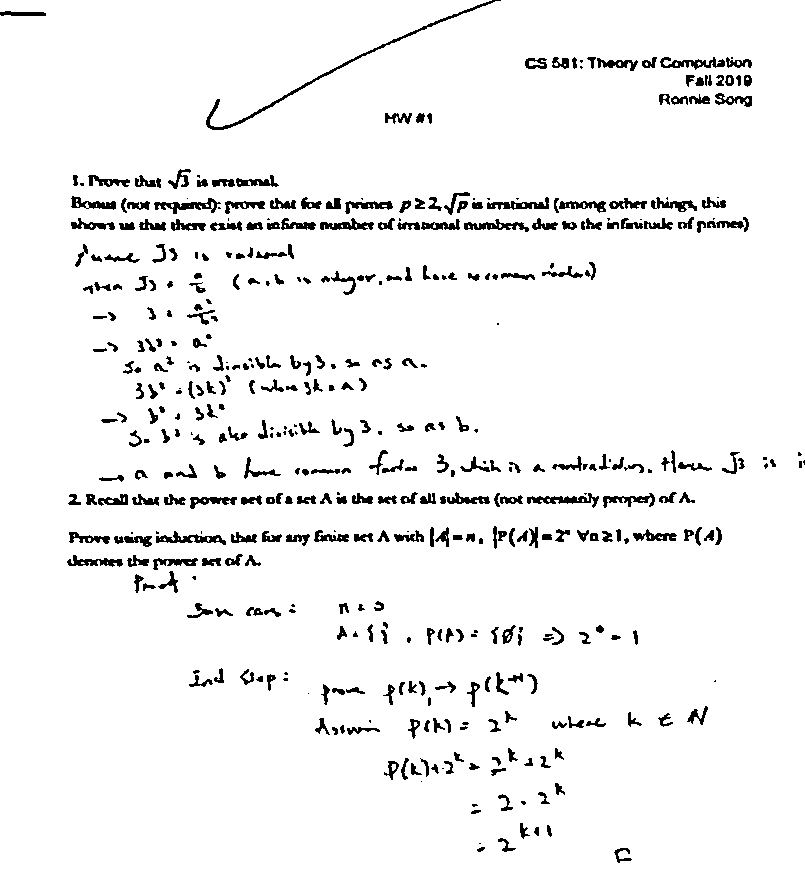 CS 581: Theory of Computation
Fall 2019
Ronnie Song
HW #1
1. Prove that √3 is irrational.
Bonus (not required): prove that for all primes p ≥ 2, √p is irrational (among other things, this
shows us that there exist an infinite number of irrational numbers, due to the infinitude of primes)
√3 is rational
then √3 = a/b (a, b is integer, and have no common factors)
→ 3 = a²/b²
→ 3b² = a²
So a² is divisible by 3. so as a.
3b² = (3k)² (where 3k = a)
→ b² = 3k²
So b² is also divisible by 3. so as b.
→ a and b have common factor 3, which is a contradiction. Hence √3 is
2. Recall that the power set of a set A is the set of all subsets (not necessarily proper) of A.
Prove using induction, that for any finite set A with |A| = n, |P(A)| = 2ⁿ ∀n ≥ 1, where P(A)
denotes the power set of A.
Proof:
Base case: n = 0
A = {}, P(A) = {∅} => 2⁰ = 1
Ind Step: prove p(k) → p(k+1)
Assume P(k) = 2^k where k ∈ N
P(k) + 2^k = 2^k + 2^k
= 2 · 2^k
= 2^{k+1}